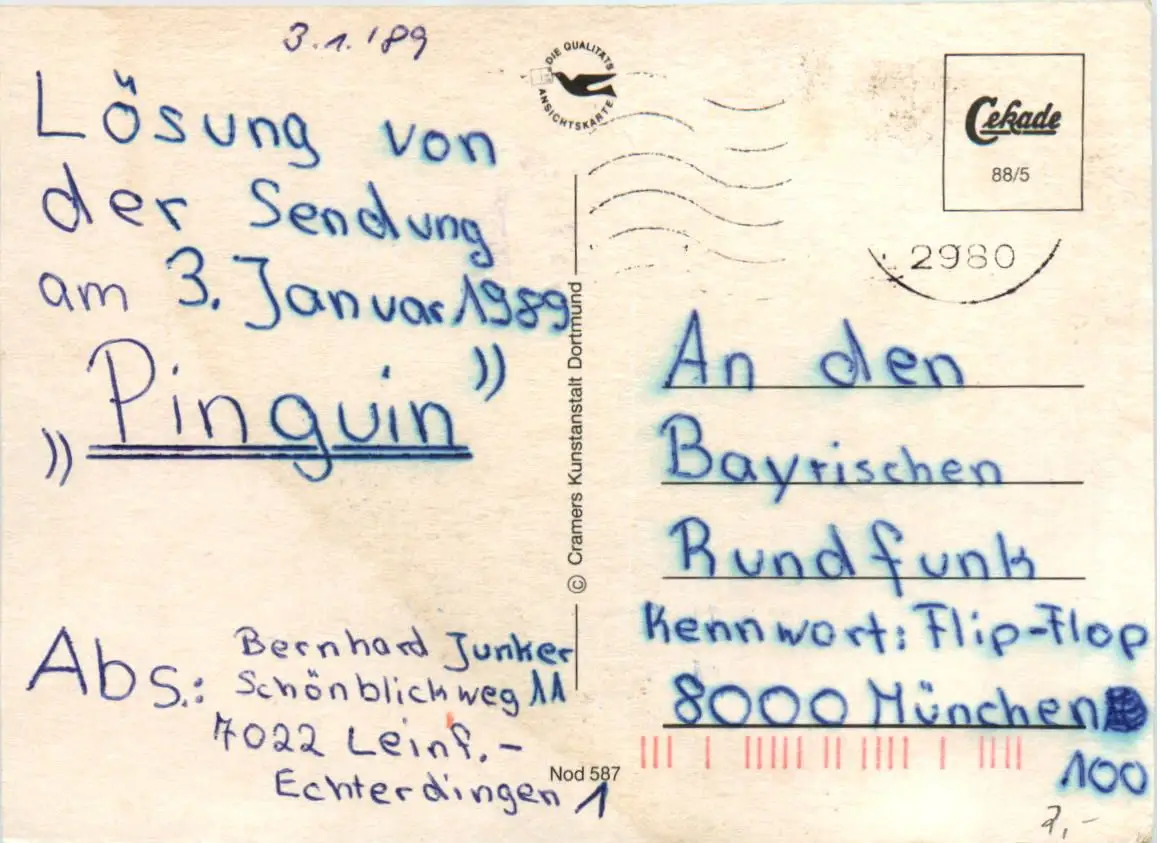 3.1.'89
Lösung von
der Sendung
am 3. Januar 1989
"Pinguin"
Abs.: Bernhard Junker
Schönblickweg 11
7022 Leinf.-
Echterdingen 1
DIE QUALITÄTS
ANSICHTSKARTE
© Cramers Kunstanstalt Dortmund
Nod 587
Cekade
88/5
2980
An den
Bayrischen
Rundfunk
Kennwort: Flip-Flop
8000 München
100